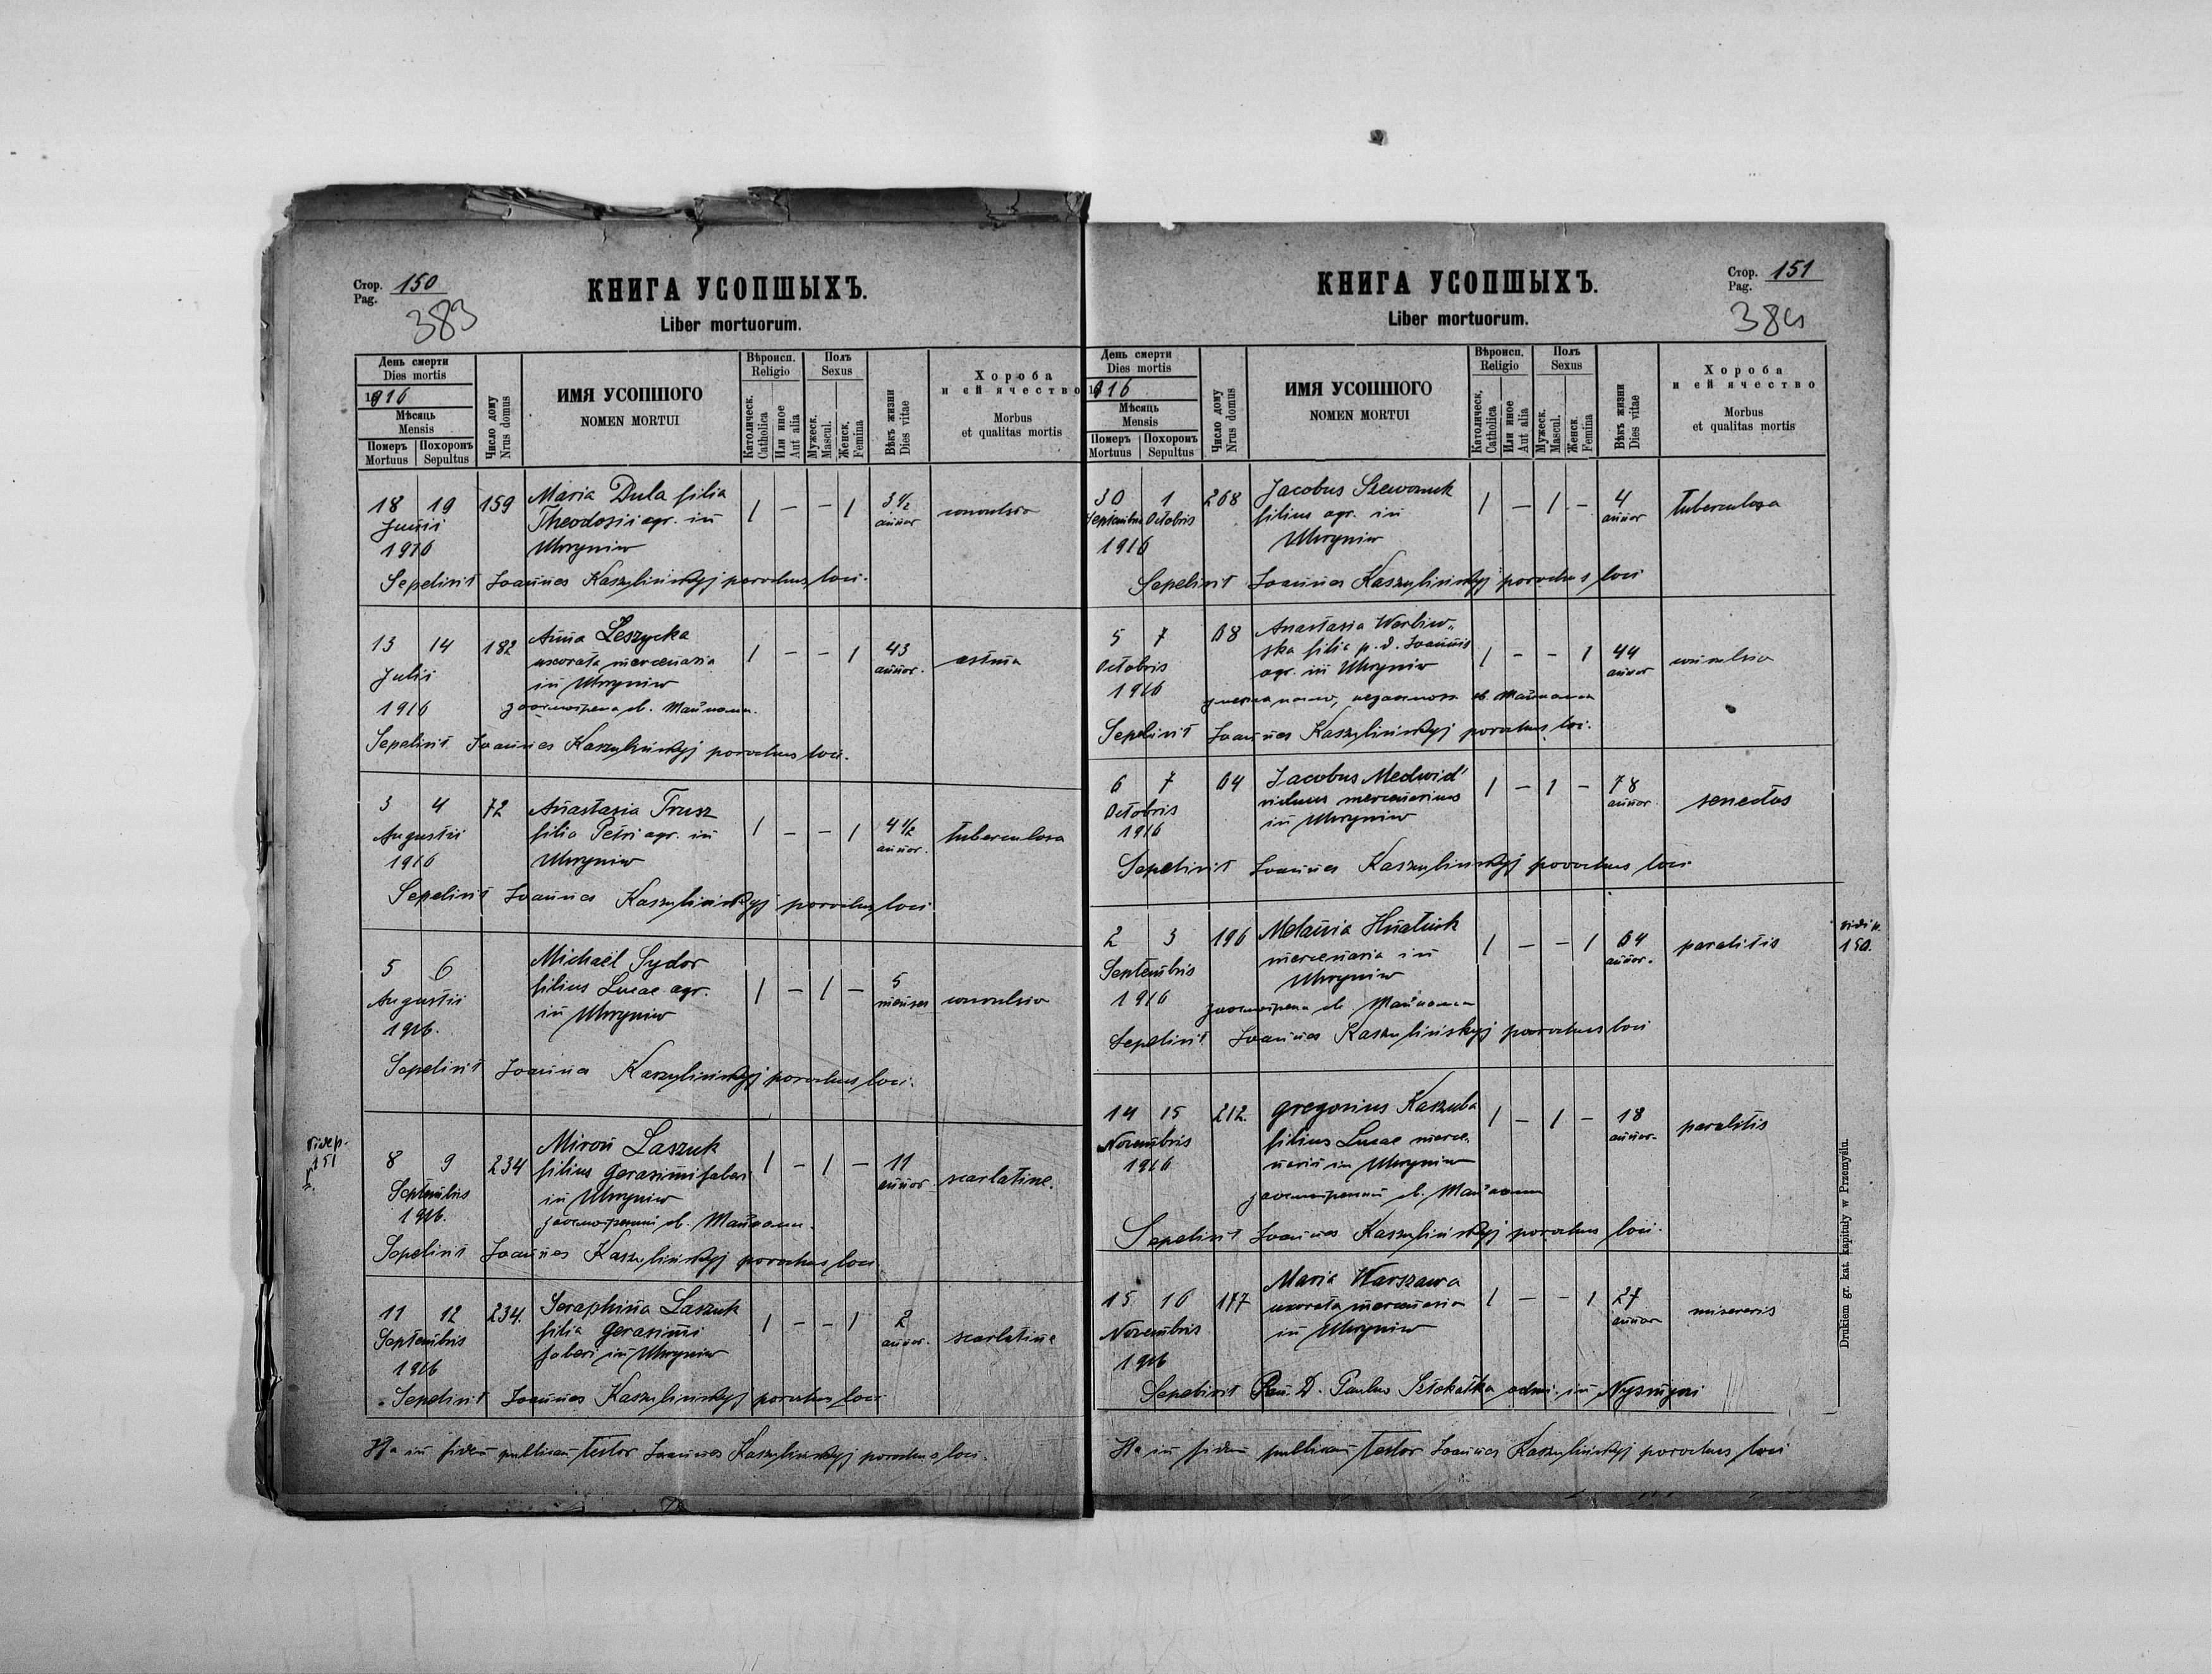 Стор. 150
Pag.
383
КНИГА УСОПШЫХЪ.
Liber mortuorum.
День смерти
Dies mortis
1916
Мѣсяць
Mensis
Померъ Похоронъ
Mortuus Sepultus
Число дому
Nrus domus
ИМЯ УСОПШОГО
NOMEN MORTUI
Вѣроисп.
Religio
Католическ.
Catholica
Или иное
Aut alia
Полъ
Sexus
Мужеск.
Mascul.
Женск.
Femina
Вѣкъ жизни
Dies vitae
Хороба
и ей ячество
Morbus
et qualitas mortis
18 19 159 Maria Dula filia 1 - - 1 3 1/2 convulsio
Junii Theodosii agr. in annor
1916 Uhryniw
Sepelivit Joannes Kaszulinśkyj parochus loci.
13 14 182 Anna Leszycka 1 - - 1 43 astma
Julii uxorata mercenaria annor.
in Uhryniw
1916 заосмотрена св. Тайнами.
Sepelivit Joannes Kaszulinśkyj parochus loci.
3 4 72 Anastasia Trusz 1 - - 1 4 1/2 tuberculosa
Augustii filia Petri agr. in annor.
1916 Uhryniw
Sepelivit Joannes Kaszulinśkyj parochus loci
5 6 Michaël Sydor 1 - 1 - 5 convulsio
Augustii filius Lucae agr. menses
1916. in Uhryniw
Sepelivit Joannes Kaszulinśkyj parochus loci.
Vide p.
151
8 9 234 Miron Laszuk 1 - 1 - 11 scarlatine.
Septembris filius Gerasimi fabri annor
in Uhryniw
1916. заосмотрений св. Тайнами.
Sepelivit Joannes Kaszulinśkyj parochus loci
11 12 234. Seraphina Laszuk 1 - - 1 2 scarlatine
Septembris filia Gerasimi annor.
1916 fabri in Uhryniw
Sepelivit Joannes Kaszulinśkyj parochus loci
Ita in fidem publicam testor Joannes Kaszulinśkyj parochus loci.
Стор. 151
Pag.
384
КНИГА УСОПШЫХЪ.
Liber mortuorum.
День смерти
Dies mortis
1916
Мѣсяць
Mensis
Померъ Похоронъ
Mortuus Sepultus
Число дому
Nrus domus
ИМЯ УСОПШОГО
NOMEN MORTUI
Вѣроисп.
Religio
Католическ.
Catholica
Или иное
Aut alia
Полъ
Sexus
Мужеск.
Mascul.
Женск.
Femina
Вѣкъ жизни
Dies vitae
Хороба
и ей ячество
Morbus
et qualitas mortis
30 1 268 Jacobus Szewczuk 1 - 1 - 4 tuberculosa
Septembris Octobris filius agr. in annor
1916 Uhryniw
Sepelivit Joannes Kaszulinśkyj parochus loci
5 7 68 Anastasia Warbiw„ 1 - - 1 44 convulsio
Octobris ska filia p. d. Joannis annor
agr. in Uhryniw
1916 св. Тайнами
Sepelivit Joannes Kaszulinśkyj parochus loci.
6 7 64 Jacobus Medwid' 1 - 1 - 78 senectus
Octobris viduus mercenarius annor.
1916 in Uhryniw
Sepelivit Joannes Kaszulinśkyj parochus loci
2 3 196 Melania Hnatiuk 1 - - 1 64 paralitis
Septembris mercenaria in annor.
Uhryniw
1916 заосмотрена св. Тайнами
Sepelivit Joannes Kaszulinśkyj parochus loci
vidi p.
150.
14 15 212. Gregorius Kaszuba 1 - 1 - 18 paralitis
Novembris filius Lucae merce„ annor.
1916 narii in Uhryniw
заосмотрений св. Тайнами
Sepelivit Joannes Kaszulinśkyj parochus loci.
15 16 177 Maria Warszawa 1 - - 1 27 misereris
Novembris uxorata mercenaria annor
in Uhryniw
1916
Sepelivit D. Paulus admi. in
Ita in fidem publicam testor Joannes Kaszulinśkyj parochus loci
Drukiem gr. kat. kapituły w Przemyślu.